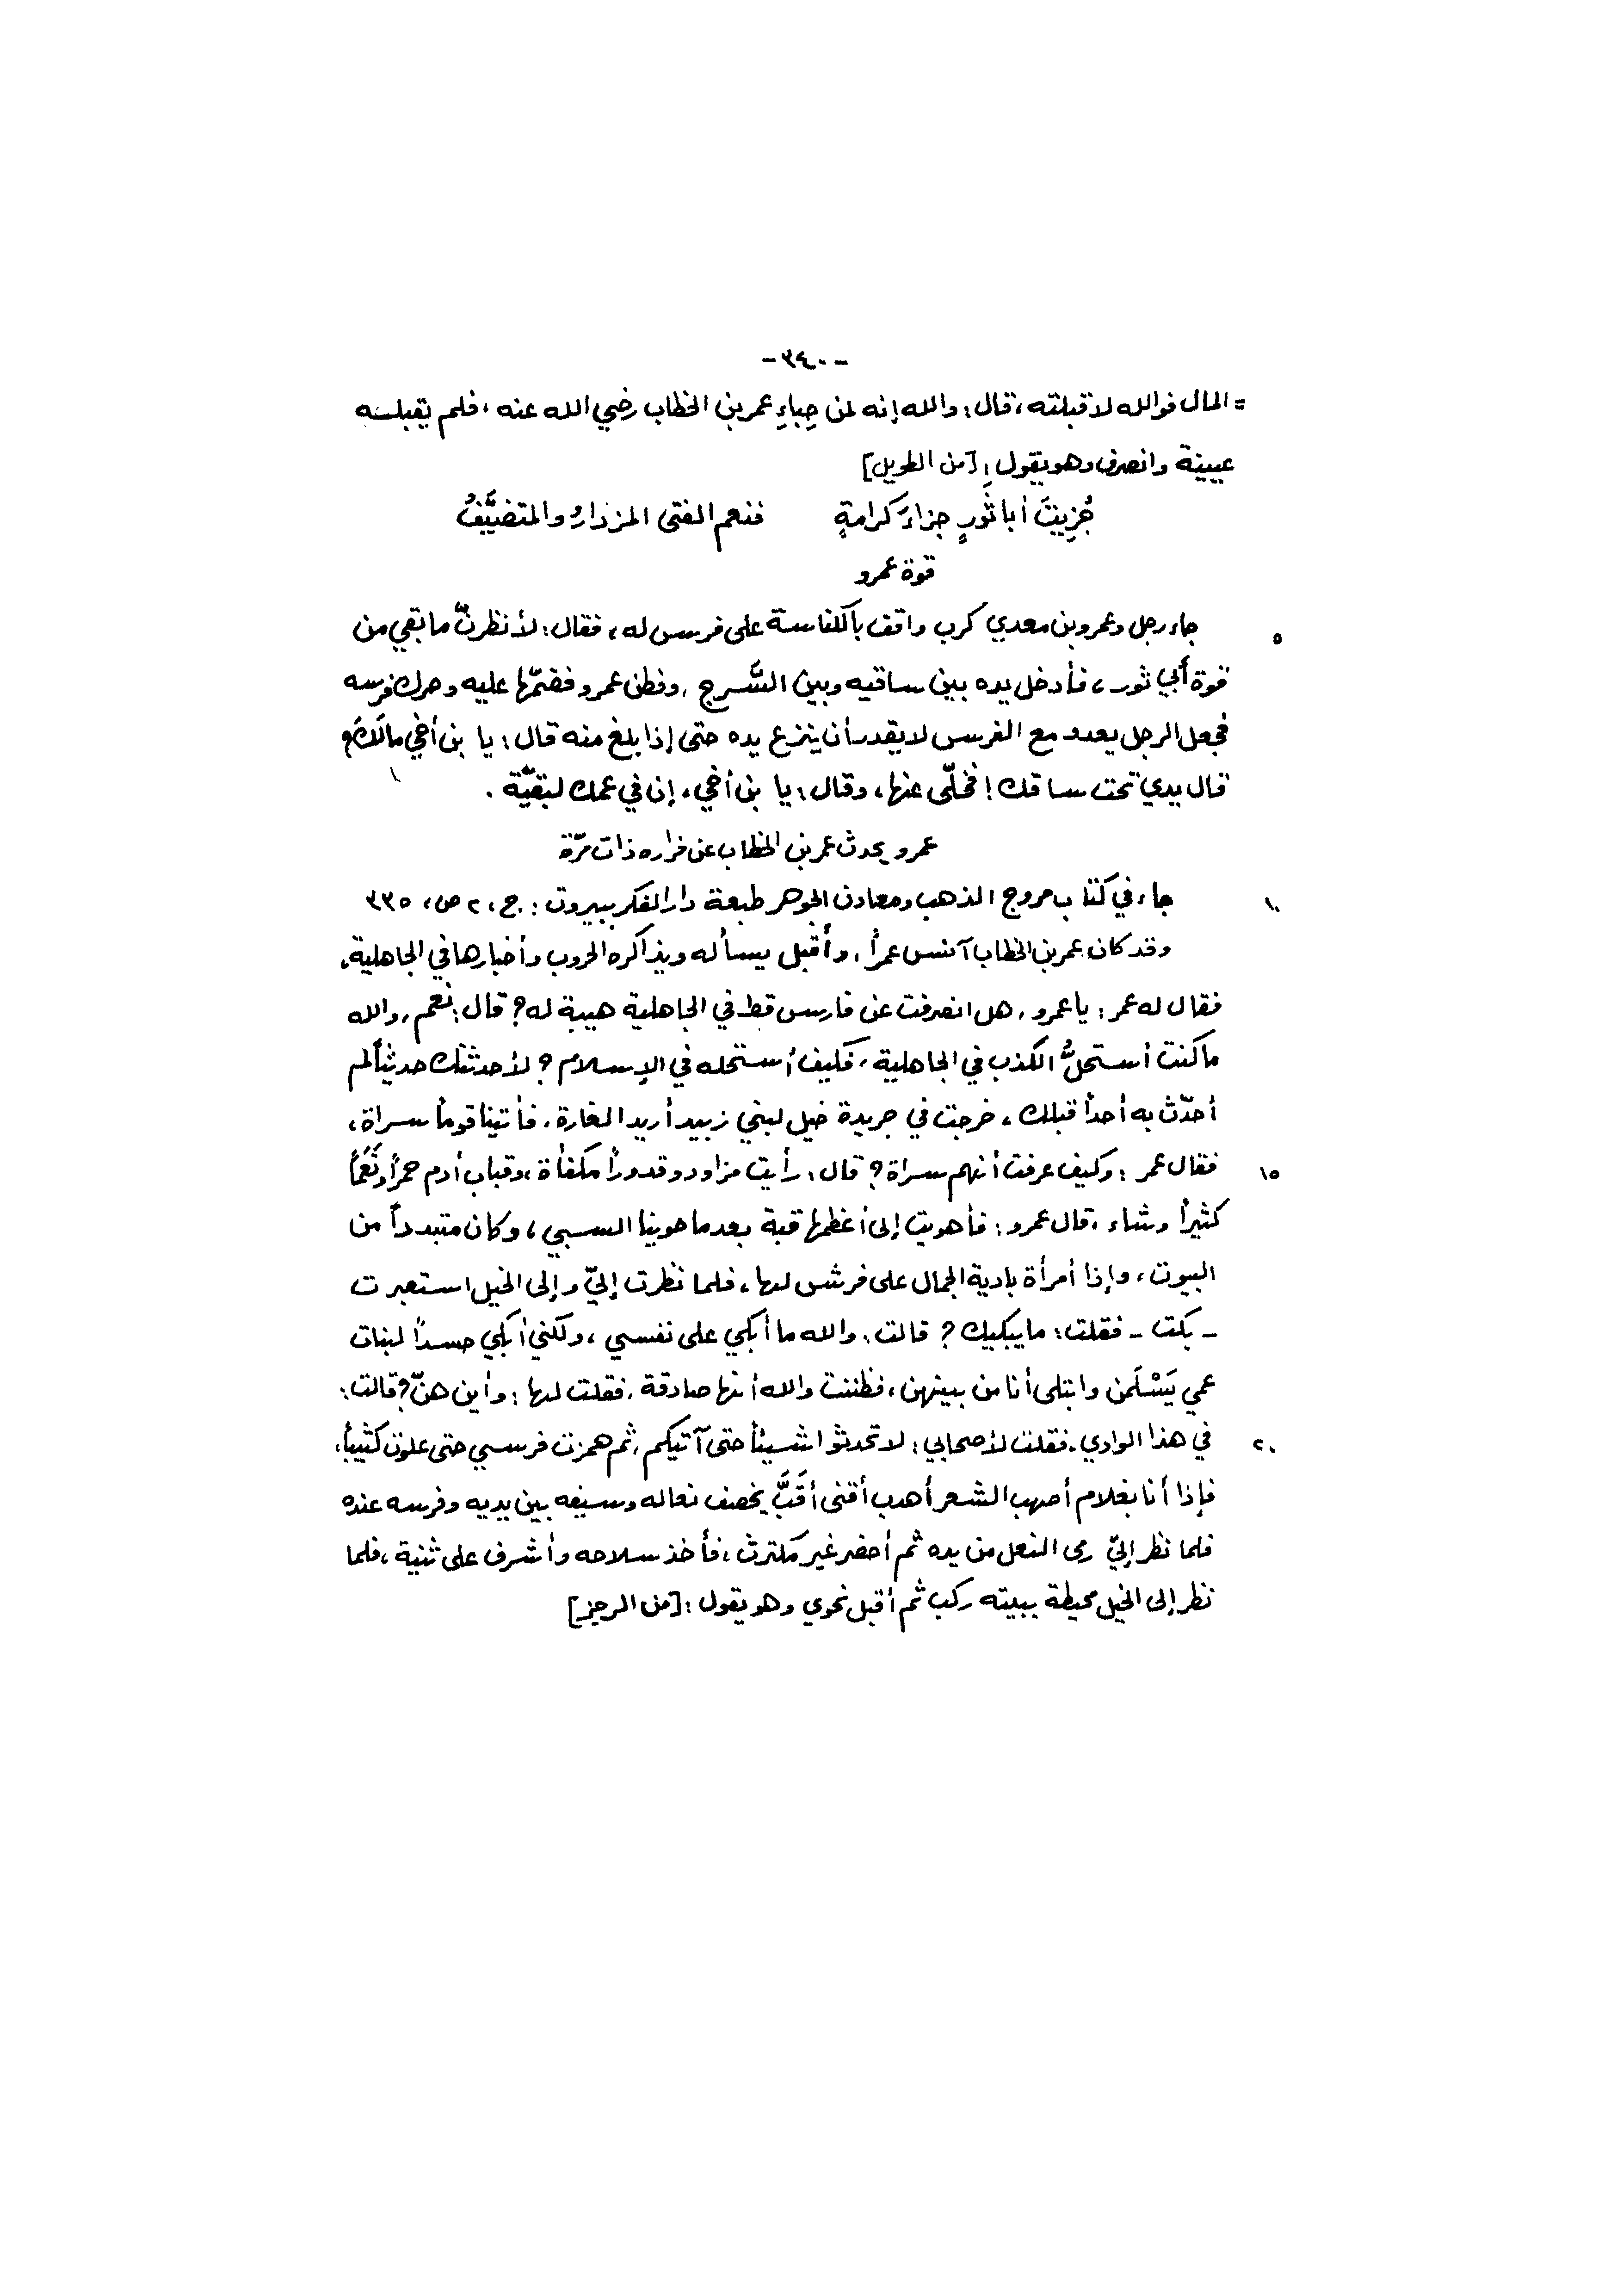 -٣٤٠-
= المال فوالله لا قبلته، قال: والله إنه لمن حِباءِ عمر بن الخطاب رضي الله عنه، فلم يقبلـنـه
عيينة وانصرف وهو يقول: [من الطويل]
جُزِيتَ أبا ثَورٍ جزاءَ كرامةٍ فنعم الفتى المزدارُ والمتضيَّفُ
قوة عمرو
٥ جاء رجل وعمرو بن معدي كرب واقف بالكناسة على فرس له، فقال: لأنظرنّ ما بقي من
قوة أبي ثور، فأدخل يده بين ساقيه وبين السَّرج، وفطن عمرو فضمّها عليه وحرك فرسه
فجعل الرجل يعدو مع الفرس لا يقدر أن ينزع يده حتى إذا بلغ منه قال: يا بن أخي مالَكَ؟
قال يدي تحت ساقك! فخلّى عنها، وقال: يا بن أخي، إن في عمك لبقيّة.
عمرو يحدث عمر بن الخطاب عن فراره ذات مرّة
١٠ جاء في كتاب مروج الذهب ومعادن الجوهر طبعة دار الفكر ببيروت: ج، ٢ ص، ٣٣٥
وقد كان عمر بن الخطاب آنس عمراً، وأقبل يسأله ويذاكره الحروب وأخبارها في الجاهلية،
فقال له عمر: يا عمرو، هل انصرفت عن فارس قط في الجاهلية هيبة له؟ قال: نعم، والله
ما كنت أستحلُّ الكذب في الجاهلية، فكيف أستحله في الإسلام؟ لأحدثنك حديثاً لم
أحدّث به أحداً قبلك، خرجت في جريدة خيل لبني زبيد أريد الغارة، فأتينا قوماً سراة،
١٥ فقال عمر: وكيف عرفت أنهم سراة؟ قال: رأيت مزاود وقدوراً مكفأة، وقباب أدم حمراً ونَعَماً
كثيراً وشاء، قال عمرو: فأهويت إلى أعظمها قبة بعدما حوينا السبي، وكان متبدداً من
البيوت، وإذا أمرأة بادية الجمال على فرش لها، فلما نظرت إليّ وإلى الخيل استعبرت
- بكت - فقلت: ما يبكيك؟ قالت: والله ما أبكي على نفسي، ولكني أبكي حسداً لبنات
عمي يَسْلَمن وابتلى أنا من بينهن، فظننت والله أنها صادقة، فقلت لها: وأين هنّ؟ قالت:
٢٠ في هذا الوادي، فقلت لأصحابي: لا تحدثوا شيئاً حتى آتيكم، ثم همزت فرسي حتى علوت كثيباً،
فإذا أنا بغلام أصهب الشعر أهدب أقنى أقَبَّ يخصف نعاله وسيفه بين يديه وفرسه عنده
فلما نظر إليّ رمى النعل من يده ثم أحضر غير مكترث، فأخذ سلاحه وأشرف على ثنية، فلما
نظر إلى الخيل محيطة ببيته ركب ثم أقبل نحوي وهو يقول: [من الرجز]